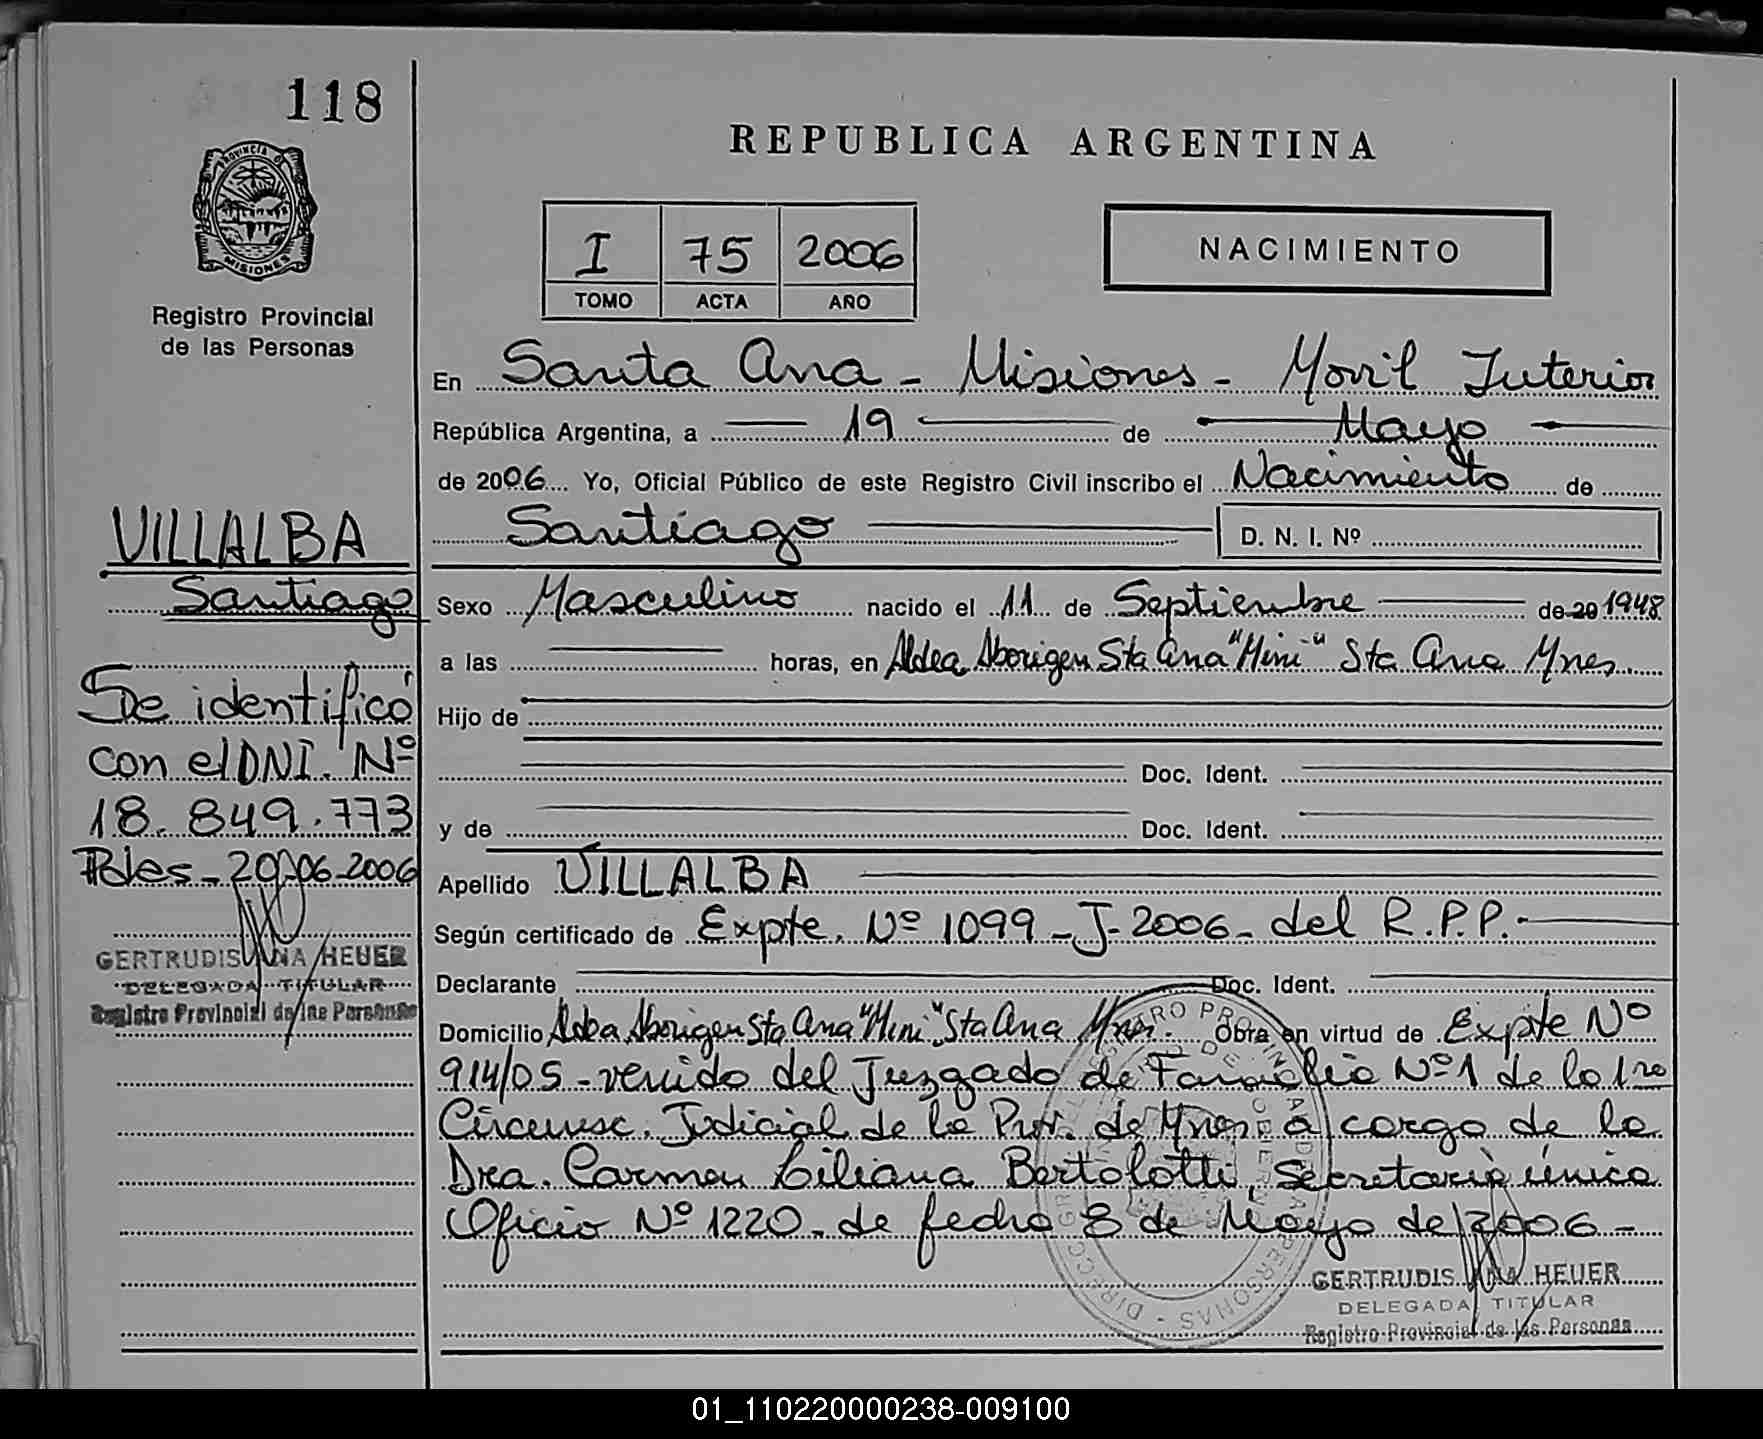 118
PROVINCIA DE
MISIONES
Registro Provincial
de las Personas
VILLALBA
Santiago
Se identificó
con el DNI. Nº
18.849.773
Pdas - 20-06-2006
GERTRUDIS ANA HEUER
DELEGADA TITULAR
Registro Provincial de las Personas
REPUBLICA ARGENTINA
I 75 2006
TOMO ACTA AÑO
NACIMIENTO
En Santa Ana - Misiones - Movil Interior
República Argentina, a 19 de Mayo
de 2006 Yo, Oficial Público de este Registro Civil inscribo el Nacimiento de
Santiago D. N. I. Nº
Sexo Masculino nacido el 11 de Septiembre de 20 1948
a las horas, en Aldea Aborigen Sta Ana "Mini" Sta Ana Mnes
Hijo de
Doc. Ident.
y de Doc. Ident.
Apellido VILLALBA
Según certificado de Expte. Nº 1099 - J - 2006 - del R.P.P. -
Declarante Doc. Ident.
Domicilio Aldea Aborigen Sta Ana "Mini" Sta Ana Mnes. Obra en virtud de Expte Nº
914/05 - venido del Juzgado de Familia Nº 1 de la 1ra
Circunsc. Judicial de la Prov. de Mnes a cargo de la
Dra. Carmen Liliana Bertolotti, Secretaria única
Oficio Nº 1220 - de fecha 8 de Mayo de 2006 -
GERTRUDIS ANA HEUER
DELEGADA TITULAR
Registro Provincial de las Personas
01_110220000238-009100